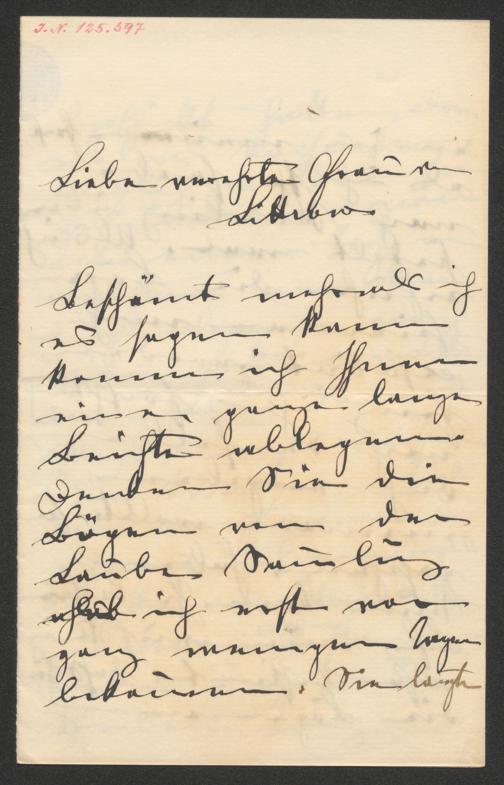 J.N. 125.597
Liebe verehrte Frau v
Littrow
Beschämt mehr als ich
es sagen kann
komme ich Ihnen
eine ganze lange
Beichte ablegen.
Denken Sie die
Bögen von der
Laube Samlung
hab ich erst vor
ganz wenigen Tagen
bekommen. Sie langte